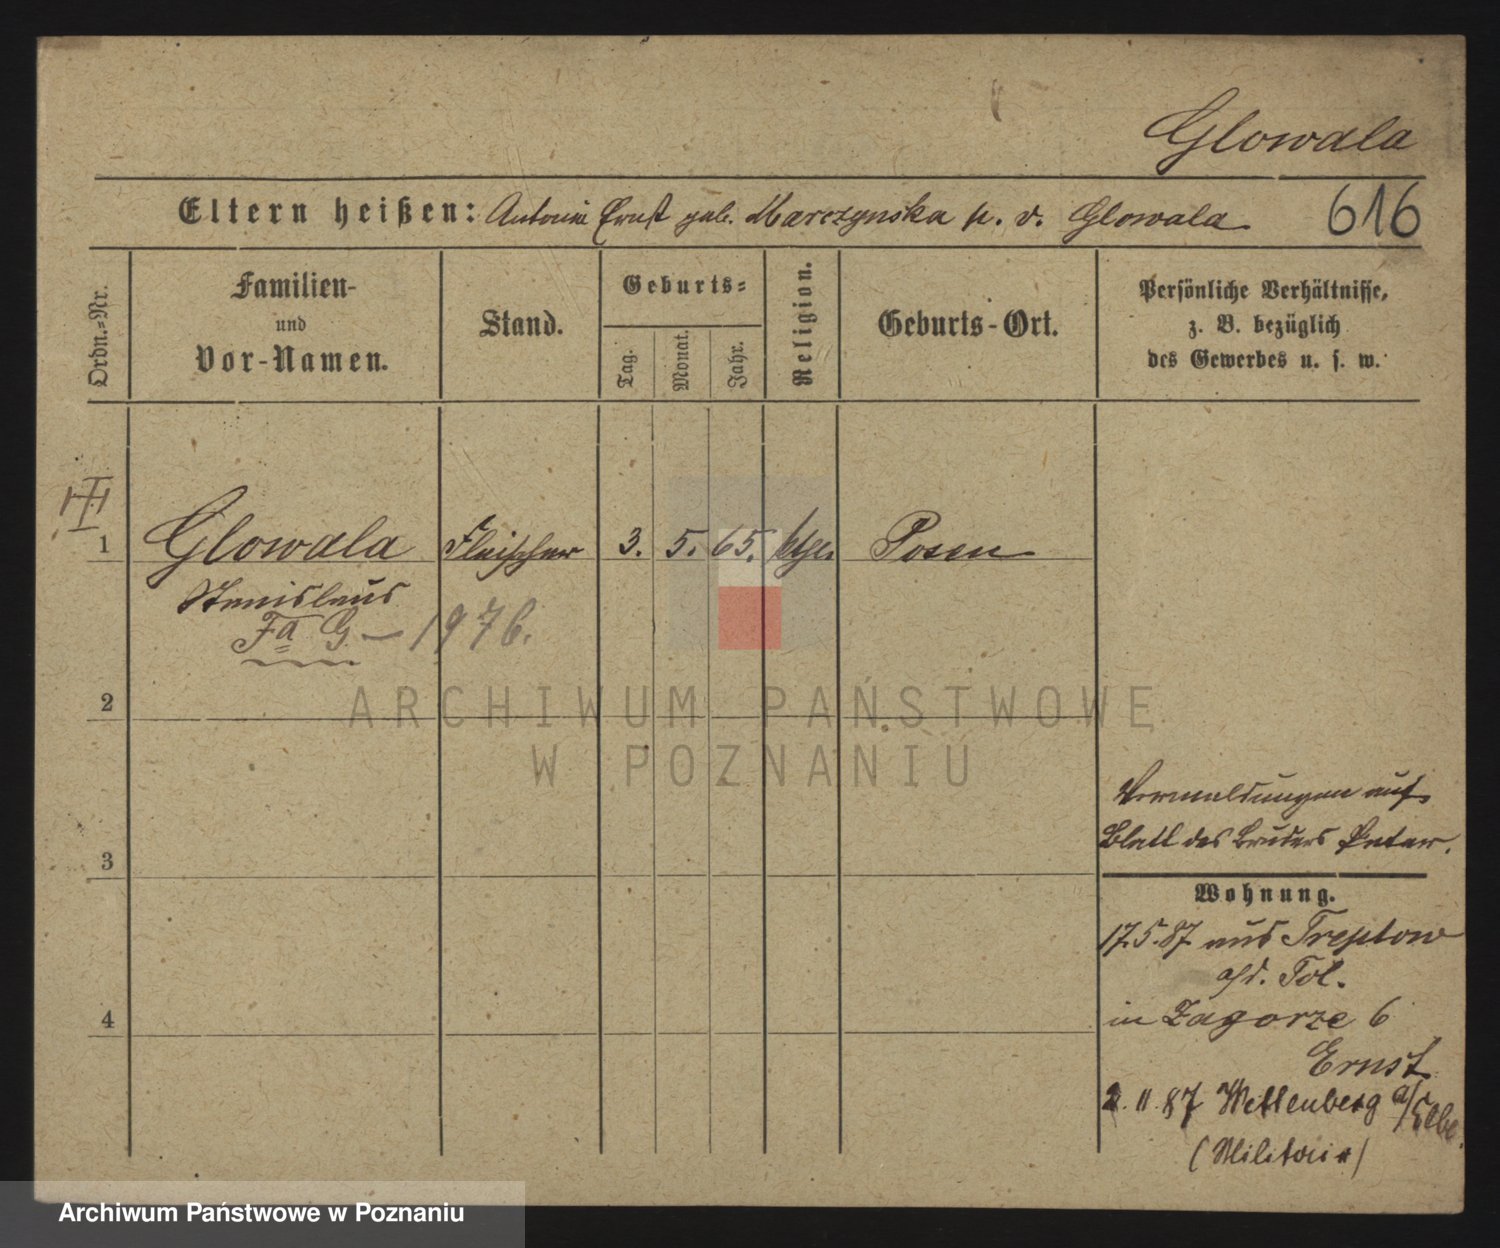 Glowala
Eltern heißen: Antonie Ernst geb. Marczynska p. v. Glowala
616
Ordn.=Nr.
Familien-
und
Vor-Namen.
Stand.
Geburts=
Tag.
Monat.
Jahr.
Religion.
Geburts-Ort.
Persönliche Verhältnisse,
z. B. bezüglich
des Gewerbes u. s. w.
1 Glowala Fleischer 3. 5. 65. Posen
Stanislaus
Fa G — 1976.
2
3
4
ARCHIWUM PAŃSTWOWE
W POZNANIU
Vermeldungen auf
Blatt des Bruders Peter.
Wohnung.
17.5.87 aus Treptow
a/d. Tol.
in Zagorze 6
Ernst
2.11.87 Wettenberg a/Elbe.
(Militair)
Archiwum Państwowe w Poznaniu